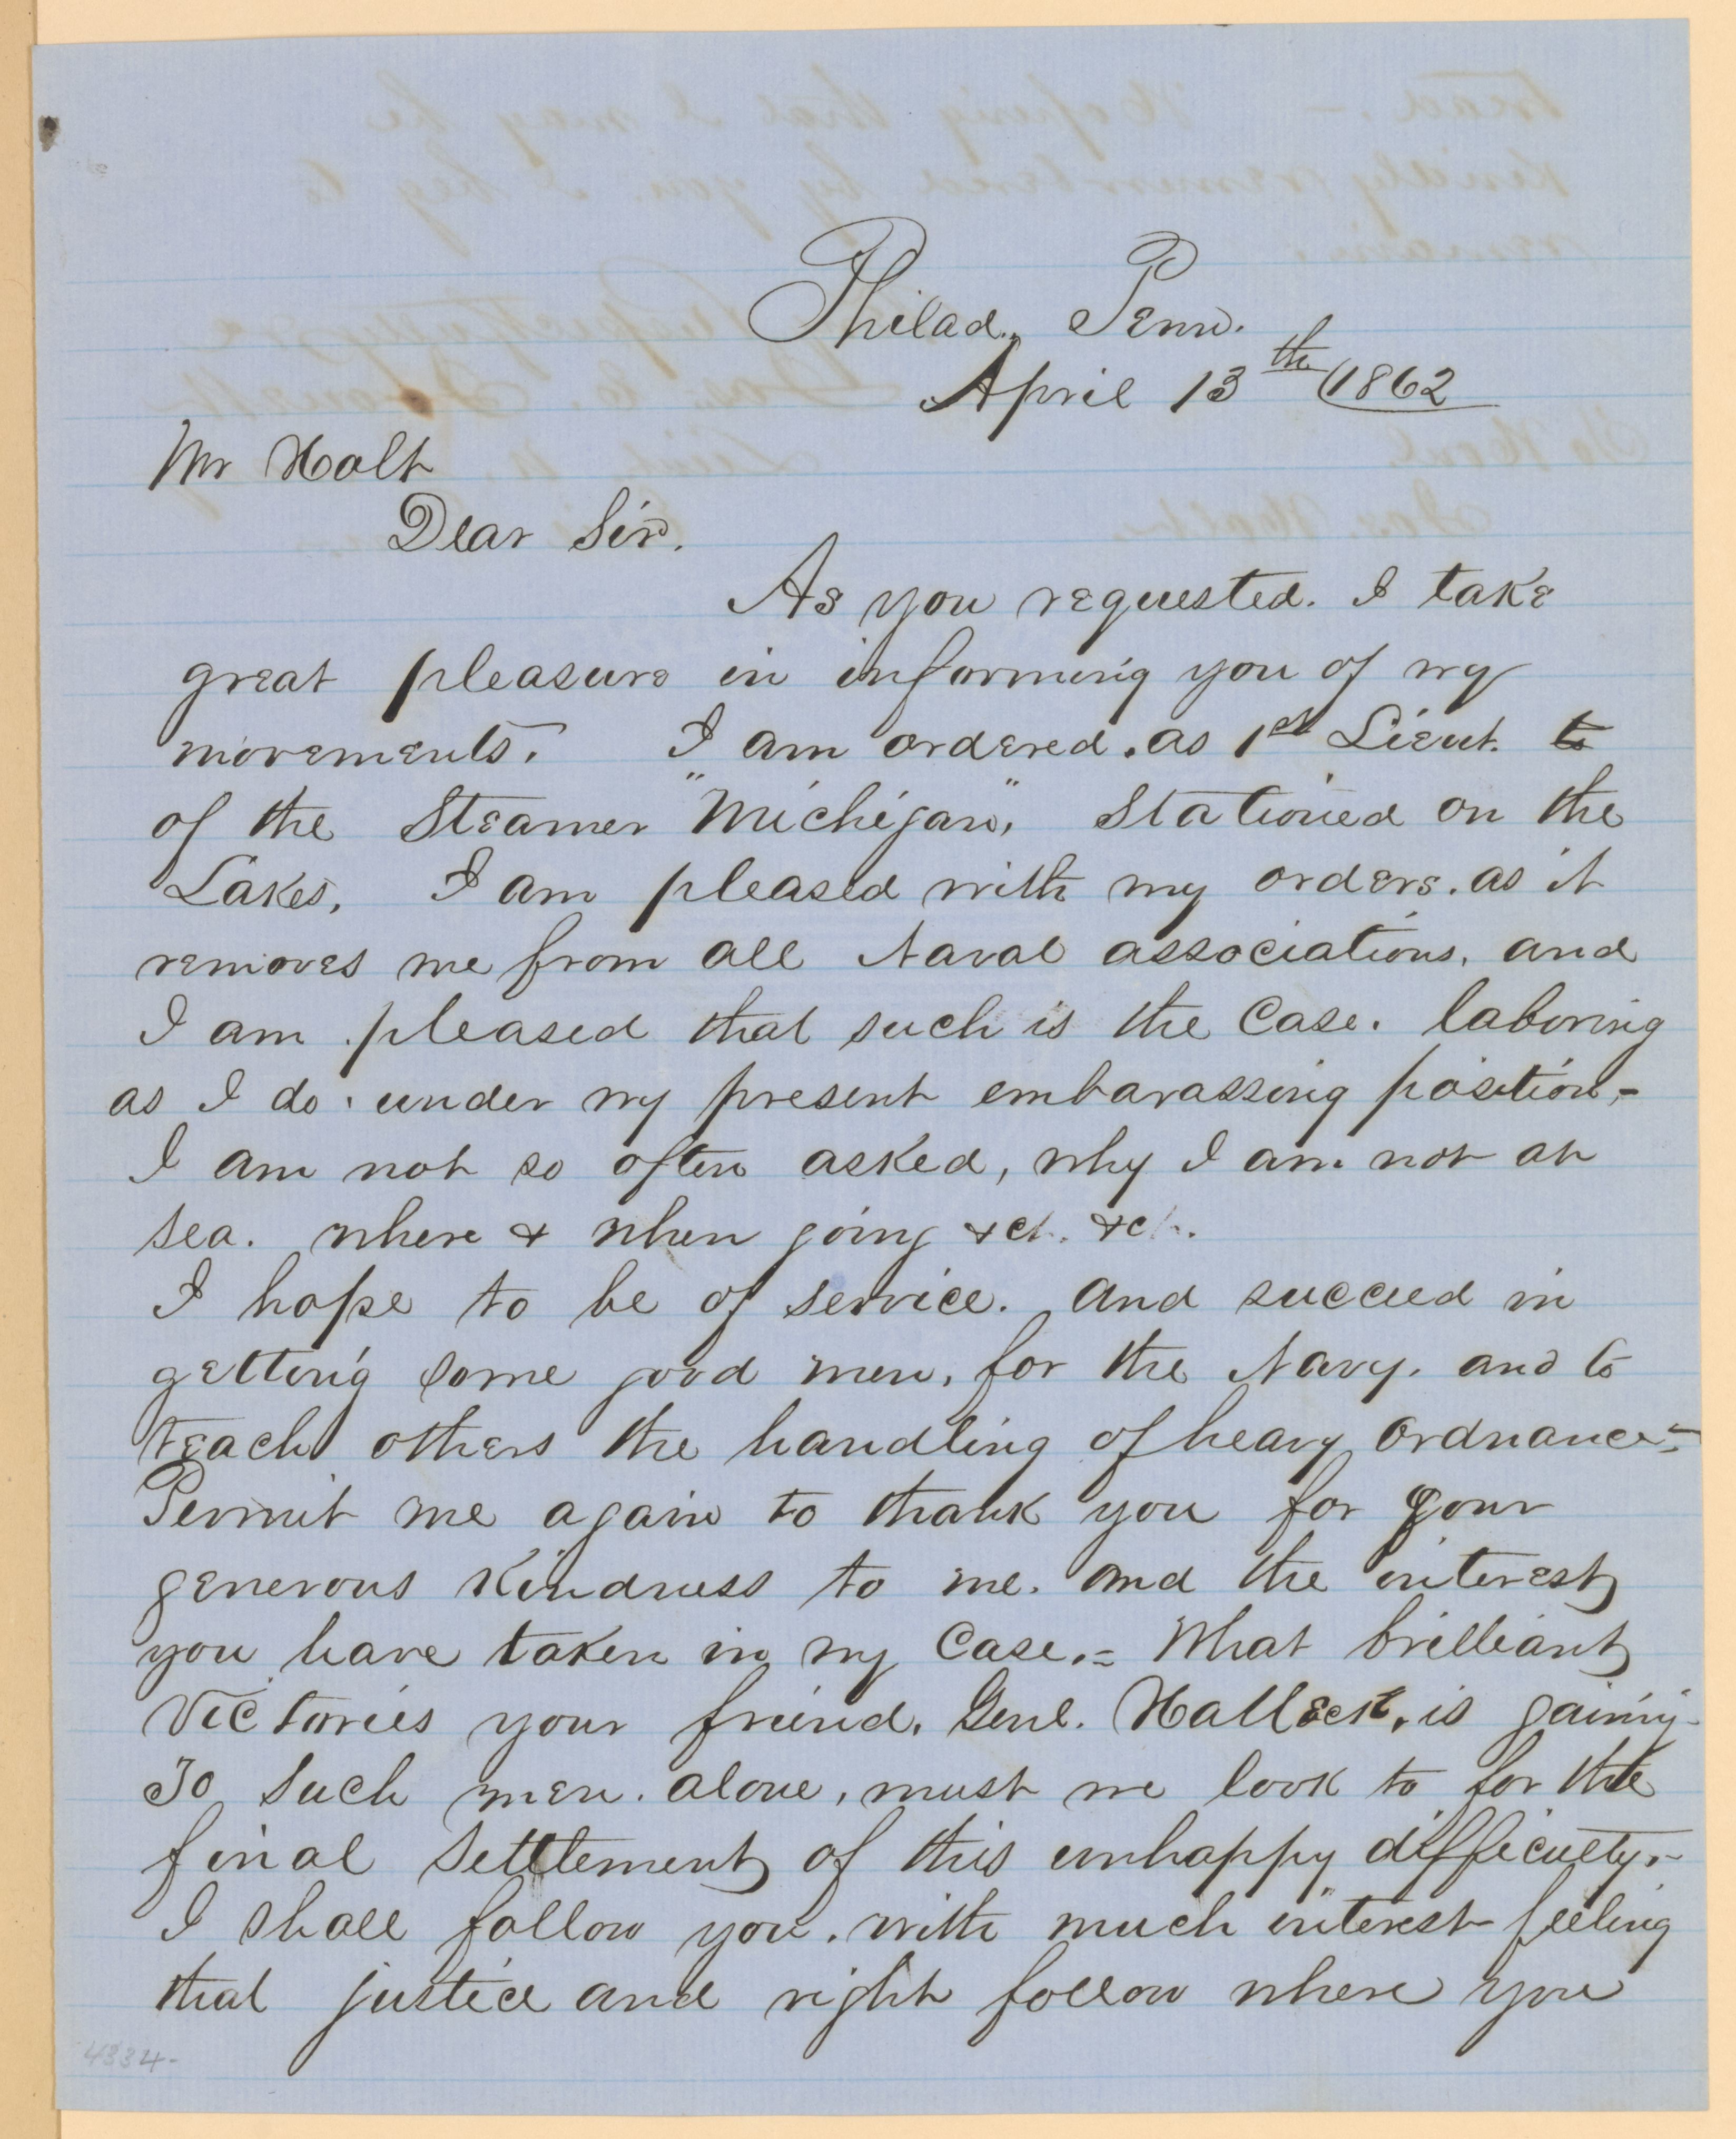 Philad., Penn.
April 13th 1862
Mr Holt
Dear Sir.
As you requested. I take
great pleasure in informing you of my
movements. I am ordered. as 1st Lieut. to
of the Steamer "Michigan", Stationed on the
Lakes. I am pleased with my orders. as it
removes me from all Naval associations, and
I am pleased that such is the Case. laboring
as I do. under my present embarassing position,-
I am not so often asked, why I am not at
sea. where & when going &ct. &ct.
I hope to be of service. and succeed in
getting some good men, for the Navy. and to
teach others the handling of heavy Ordnance-
Permit me again to thank you for your
generous kindness to me. and the interest
you have taken in my Case.= What brilliant
Victories your friend, Genl. Halleck, is gaining-
To such men. alone, must we look to for the
final Settlement of this unhappy difficulty.-
I shall follow you. with much interest feeling
that justice and right follow where you
4334-